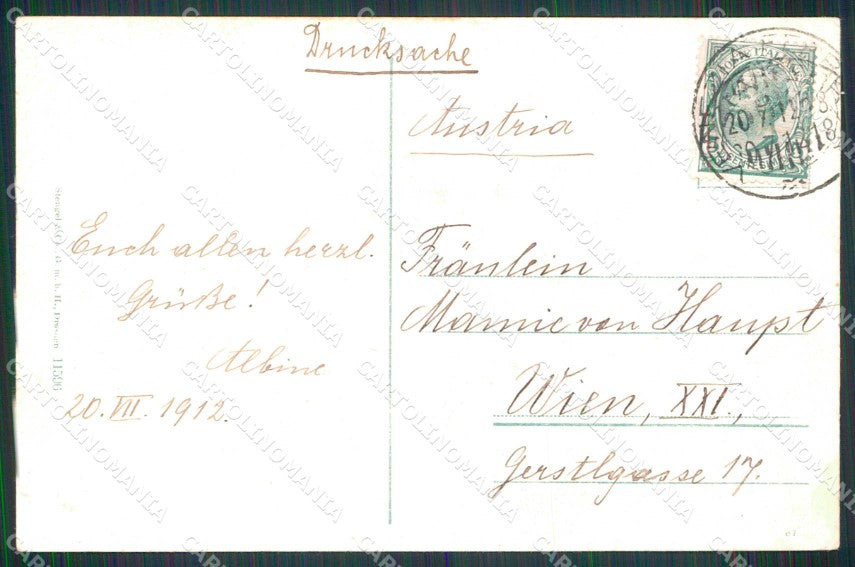 Drucksache
Austria
Euch allen herzl.
Grüße!
Albine
20. VII. 1912.
Fräulein
Mamie von Haupt
Wien, XXI.,
Gerstlgasse 17.
Stengel & Co., G. m. b. H., Dresden 11596
CARTOLINOMANIA